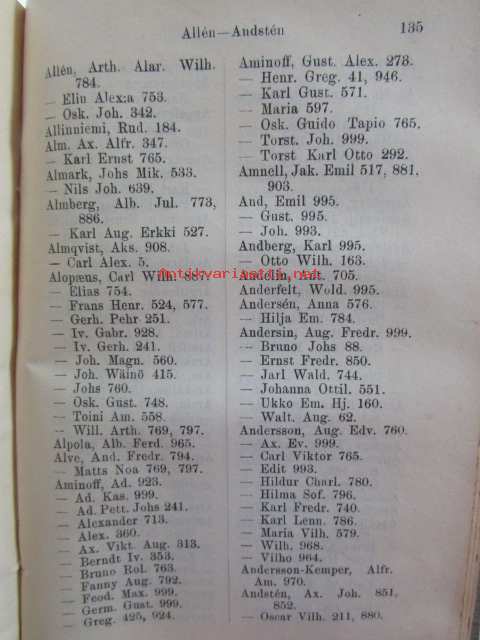 Allén—Andstén 135
Allén, Arth. Alar. Wilh.
784.
— Elin Alex:a 753.
— Osk. Joh. 342.
Allinniemi, Rud. 184.
Alm. Ax. Alfr. 347.
— Karl Ernst 765.
Almark, Johs Mik. 533.
— Nils Joh. 639.
Almberg, Alb. Jul. 773,
886.
— Karl Aug. Erkki 527.
Almqvist, Aks. 908.
— Carl Alex. 5.
Alopæus, Carl Wilh. 887.
— Elias 754.
— Frans Henr. 524, 577.
— Gerh. Pehr 251.
— Iv. Gabr. 928.
— Iv. Gerh. 241.
— Joh. Magn. 560.
— Joh. Wäinö 415.
— Johs 760.
— Osk. Gust. 748.
— Toini Am. 558.
— Will. Arth. 769, 797.
Alpola, Alb. Ferd. 965.
Alve, And. Fredr. 794.
— Matts Noa 769, 797.
Aminoff, Ad. 923.
— Ad. Kas. 999.
— Ad. Pett. Johs 241.
— Alexander 713.
— Alex. 360.
— Ax. Vikt. Aug. 313.
— Berndt Iv. 353.
— Bruno Rol. 763.
— Fanny Aug. 792.
— Feod. Max. 999.
— Germ. Gust. 999.
— Greg. 425, 924.
Aminoff, Gust. Alex. 273.
— Henr. Greg. 41, 946.
— Karl Gust. 571.
— Maria 597.
— Osk. Guido Tapio 765.
— Torst. Joh. 999.
— Torst Karl Otto 292.
Amnell, Jak. Emil 517, 881,
903.
And, Emil 995.
— Gust. 995.
— Joh. 993.
Andberg, Karl 995.
— Otto Wilh. 163.
Andelin, Ant. 705.
antikvariaatti.net
Anderfelt, Wold. 995.
Andersén, Anna 576.
— Hilja Em. 784.
Andersin, Aug. Fredr. 999.
— Bruno Johs 88.
— Ernst Fredr. 850.
— Jarl Wald. 744.
— Johanna Ottil. 551.
— Ukko Em. Hj. 160.
— Walt. Aug. 62.
Andersson, Aug. Edv. 760.
— Ax. Ev. 999.
— Carl Viktor 765.
— Edit 993.
— Hildur Charl. 780.
— Hilma Sof. 796.
— Karl Fredr. 740.
— Karl Lenn. 786.
— Maria Vilh. 579.
— Wilh. 968.
— Vilho 964.
Andersson-Kemper, Alfr.
Am. 970.
Andstén, Ax. Joh. 851,
852.
— Oscar Vilh. 211, 880.